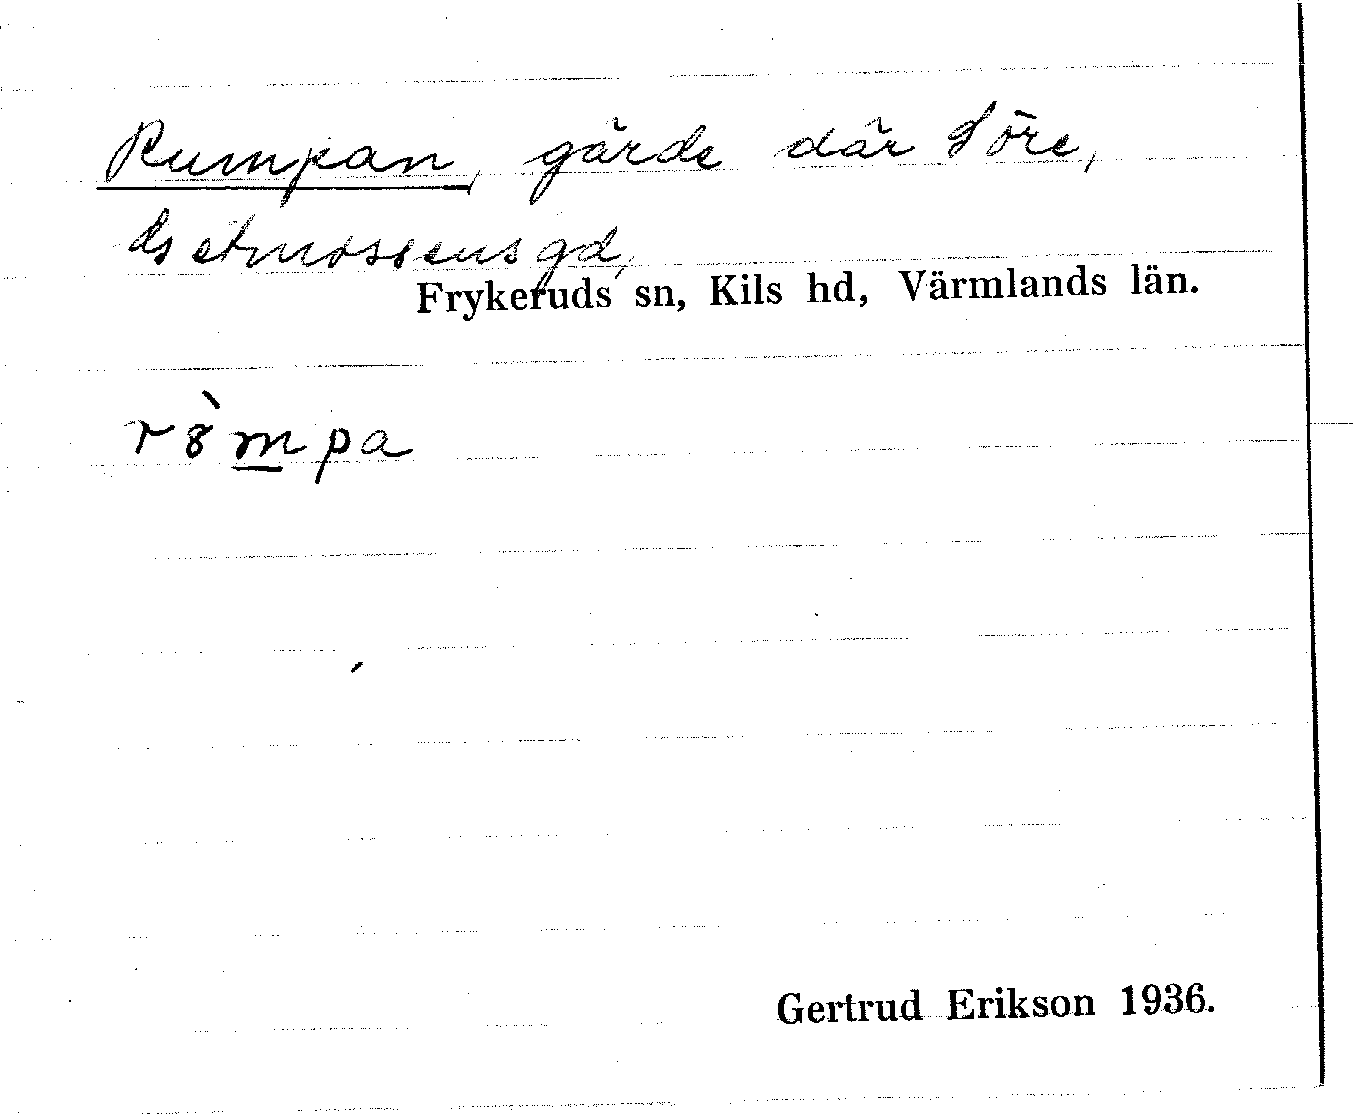 Rumpan, gärde där Söre,
gd,
Frykeruds sn, Kils hd, Värmlands län.
rò̀mpa
Gertrud Erikson 1936.